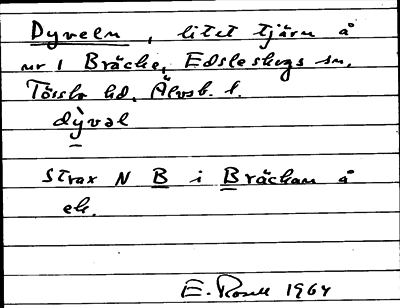 Dyveln, litet tjärn å
nr 1 Bräcke, Edsleskogs sn,
Tössbo hd, Älvsb. l.
dỳvəl
Strax N B i Bräckan å
ek.
E. Rosell 1964